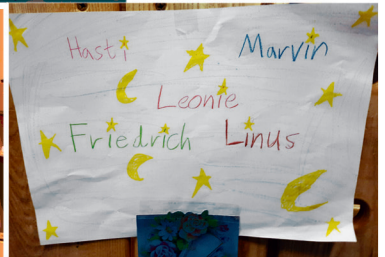 Hasti Marvin
Leonie
Friedrich Linus